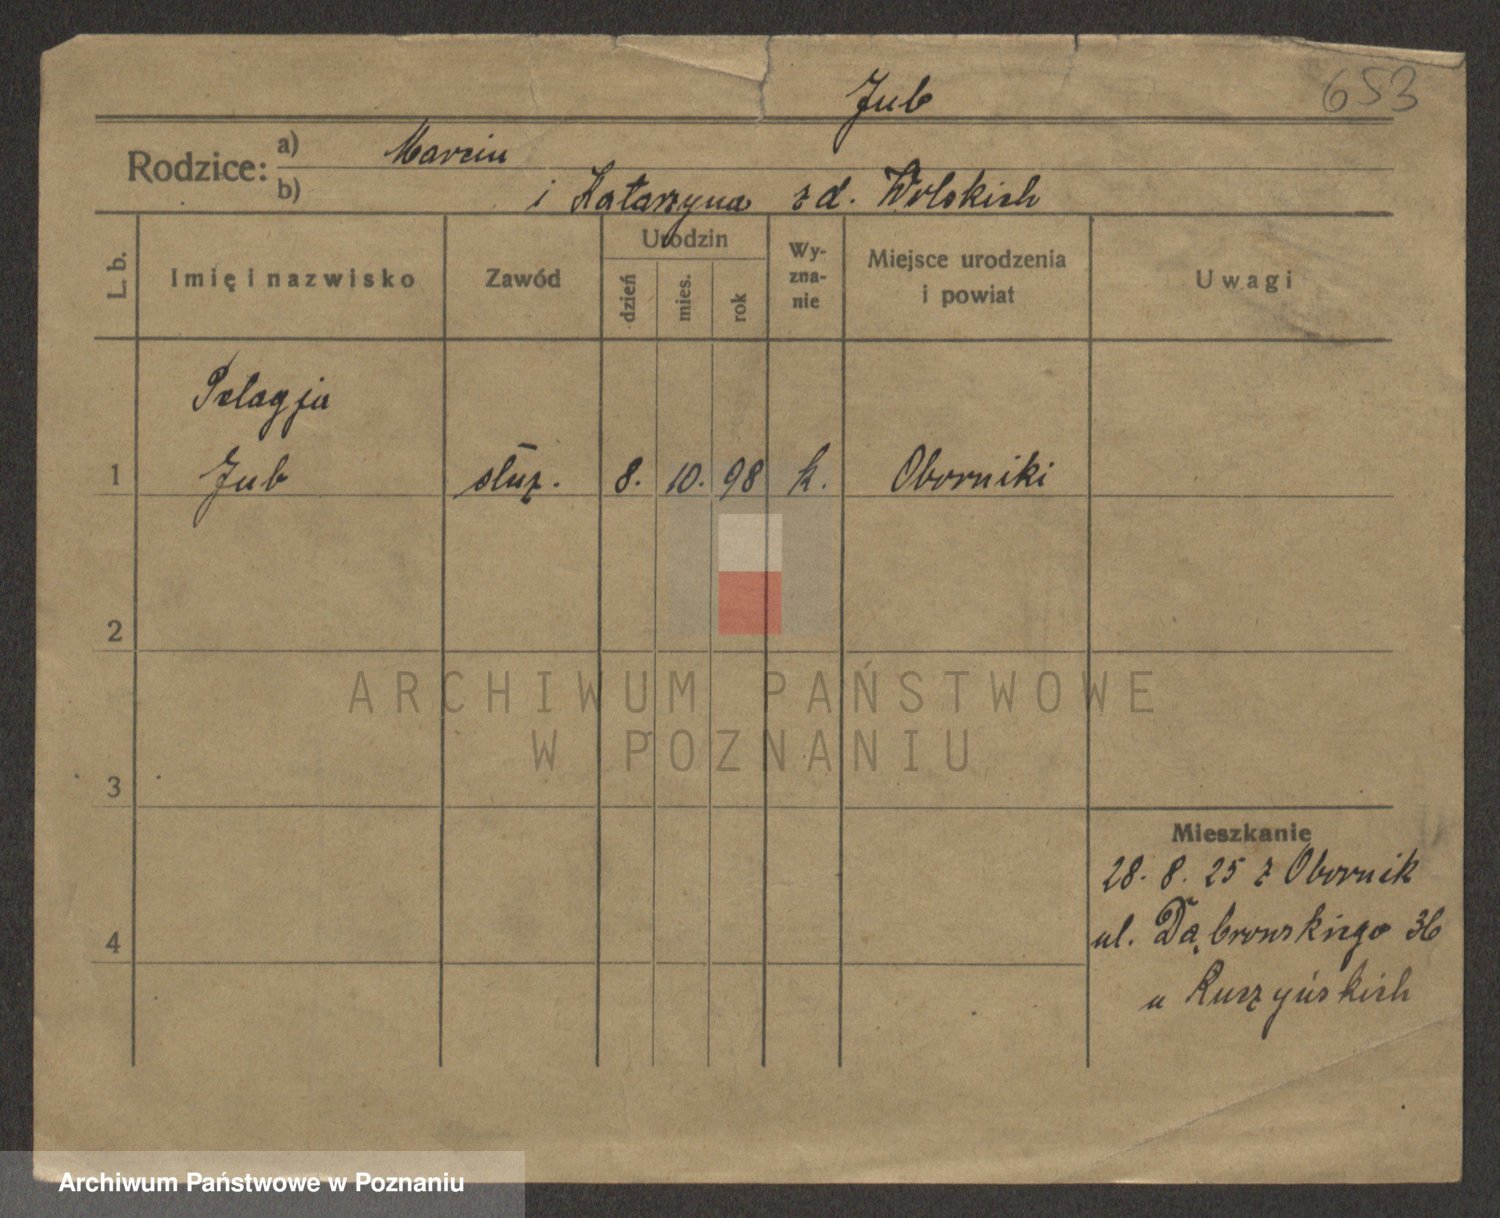 653
Jub
Rodzice: a) Marcin
b) i Katarzyna z d. Wolskich
L. b.
Imię i nazwisko
Zawód
Urodzin
dzień
mies.
rok
Wy-
zna-
nie
Miejsce urodzenia
i powiat
Uwagi
Pelagja
1 Jub służ. 8. 10. 98 k. Oborniki
2
3
4
Mieszkanie
28. 8. 25 z Obornik
ul. Dąbrowskiego 36
u Ruczyńskich
ARCHIWUM PAŃSTWOWE
W POZNANIU
Archiwum Państwowe w Poznaniu